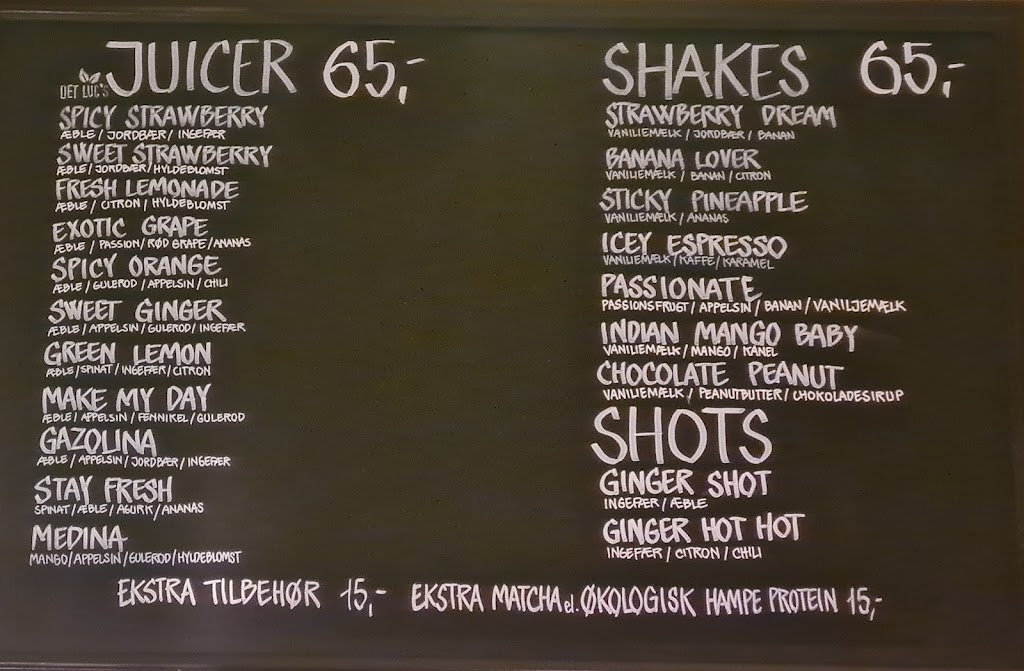 DET LUC'S
JUICER 65,-
SPICY STRAWBERRY
ÆBLE / JORDBÆR / INGEFÆR
SWEET STRAWBERRY
ÆBLE / JORDBÆR / HYLDEBLOMST
FRESH LEMONADE
ÆBLE / CITRON / HYLDEBLOMST
EXOTIC GRAPE
ÆBLE / PASSION / RØD GRAPE / ANANAS
SPICY ORANGE
ÆBLE / GULEROD / APPELSIN / CHILI
SWEET GINGER
ÆBLE / APPELSIN / GULEROD / INGEFÆR
GREEN LEMON
ÆBLE / SPINAT / INGEFÆR / CITRON
MAKE MY DAY
ÆBLE / APPELSIN / FENNIKEL / GULEROD
GAZOLINA
ÆBLE / APPELSIN / JORDBÆR / INGEFÆR
STAY FRESH
SPINAT / ÆBLE / AGURK / ANANAS
MEDINA
MANGO / APPELSIN / GULEROD / HYLDEBLOMST
SHAKES 65,-
STRAWBERRY DREAM
VANILIEMÆLK / JORDBÆR / BANAN
BANANA LOVER
VANILIEMÆLK / BANAN / CITRON
STICKY PINEAPPLE
VANILIEMÆLK / ANANAS
ICEY ESPRESSO
VANILIEMÆLK / KAFFE / KARAMEL
PASSIONATE
PASSIONSFRUGT / APPELSIN / BANAN / VANILJEMÆLK
INDIAN MANGO BABY
VANILIEMÆLK / MANGO / KANEL
CHOCOLATE PEANUT
VANILIEMÆLK / PEANUTBUTTER / CHOKOLADESIRUP
SHOTS
GINGER SHOT
INGEFÆR / ÆBLE
GINGER HOT HOT
INGEFÆR / CITRON / CHILI
EKSTRA TILBEHØR 15,- EKSTRA MATCHA el. ØKOLOGISK HAMPE PROTEIN 15,-